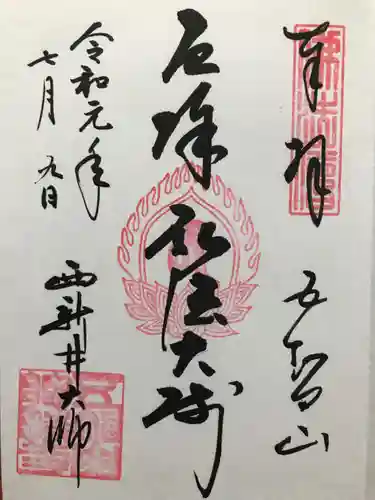 奉拝
五智山
厄除弘法大師
令和元年
七月九日
西新井大師